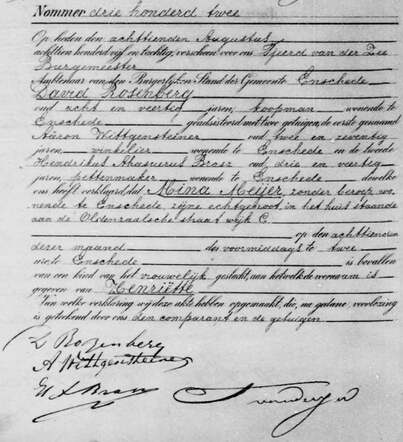 Nommer drie honderd twee
Op heden den achttienden Augustus
achttien honderd vijf en tachtig, verscheen voor ons Tjeerd van der Zee
Burgemeester
Ambtenaar van den Burgerlijken Stand der Gemeente Enschede
David Rosenberg
oud acht en veertig jaren, koopman wonende te
Enschede geadsisteerd met twee getuigen, de eerste genaamd
Aäron Wittgensteiner oud twee en zeventig
jaren, winkelier wonende te Enschede en de tweede
Hendrikus Ahasuerus oud drie en veertig
jaren, pettenmaker wonende te Enschede dewelke
ons heeft verklaard, dat Mina Meijer, zonder beroep, wo-
nende te Enschede, zijne echtgenoot, in het huis staande
aan de Oldenzaalsche straat wijk C.
op den achttienden
dezer maand des voormiddags te twee
ure te Enschede is bevallen
van een kind van het vrouwelijk geslacht, aan hetwelk de voornaam is
gegeven van Henriëtte
Van welke verklaring wij deze akte hebben opgemaakt, die, na gedane voorlezing
is geteekend door ons den comparant en de getuigen
D Rosenberg
A Wittgensteiner